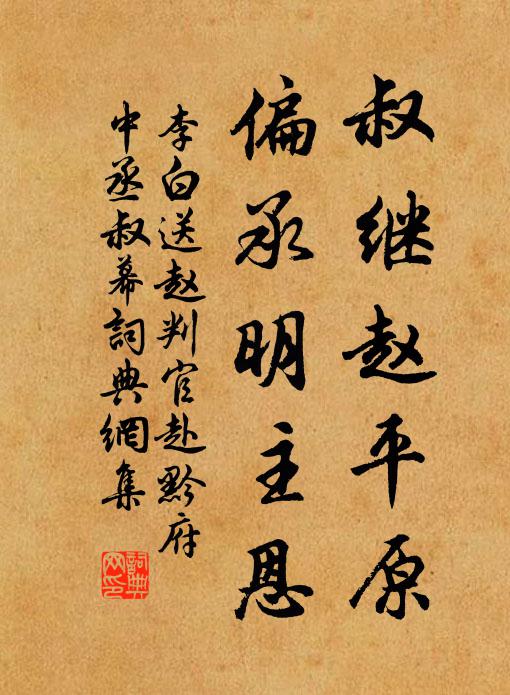 叔继赵平原
偏承明主恩
李白送赵判官赴黔府
中丞叔幕詞典網集
詞典
网印